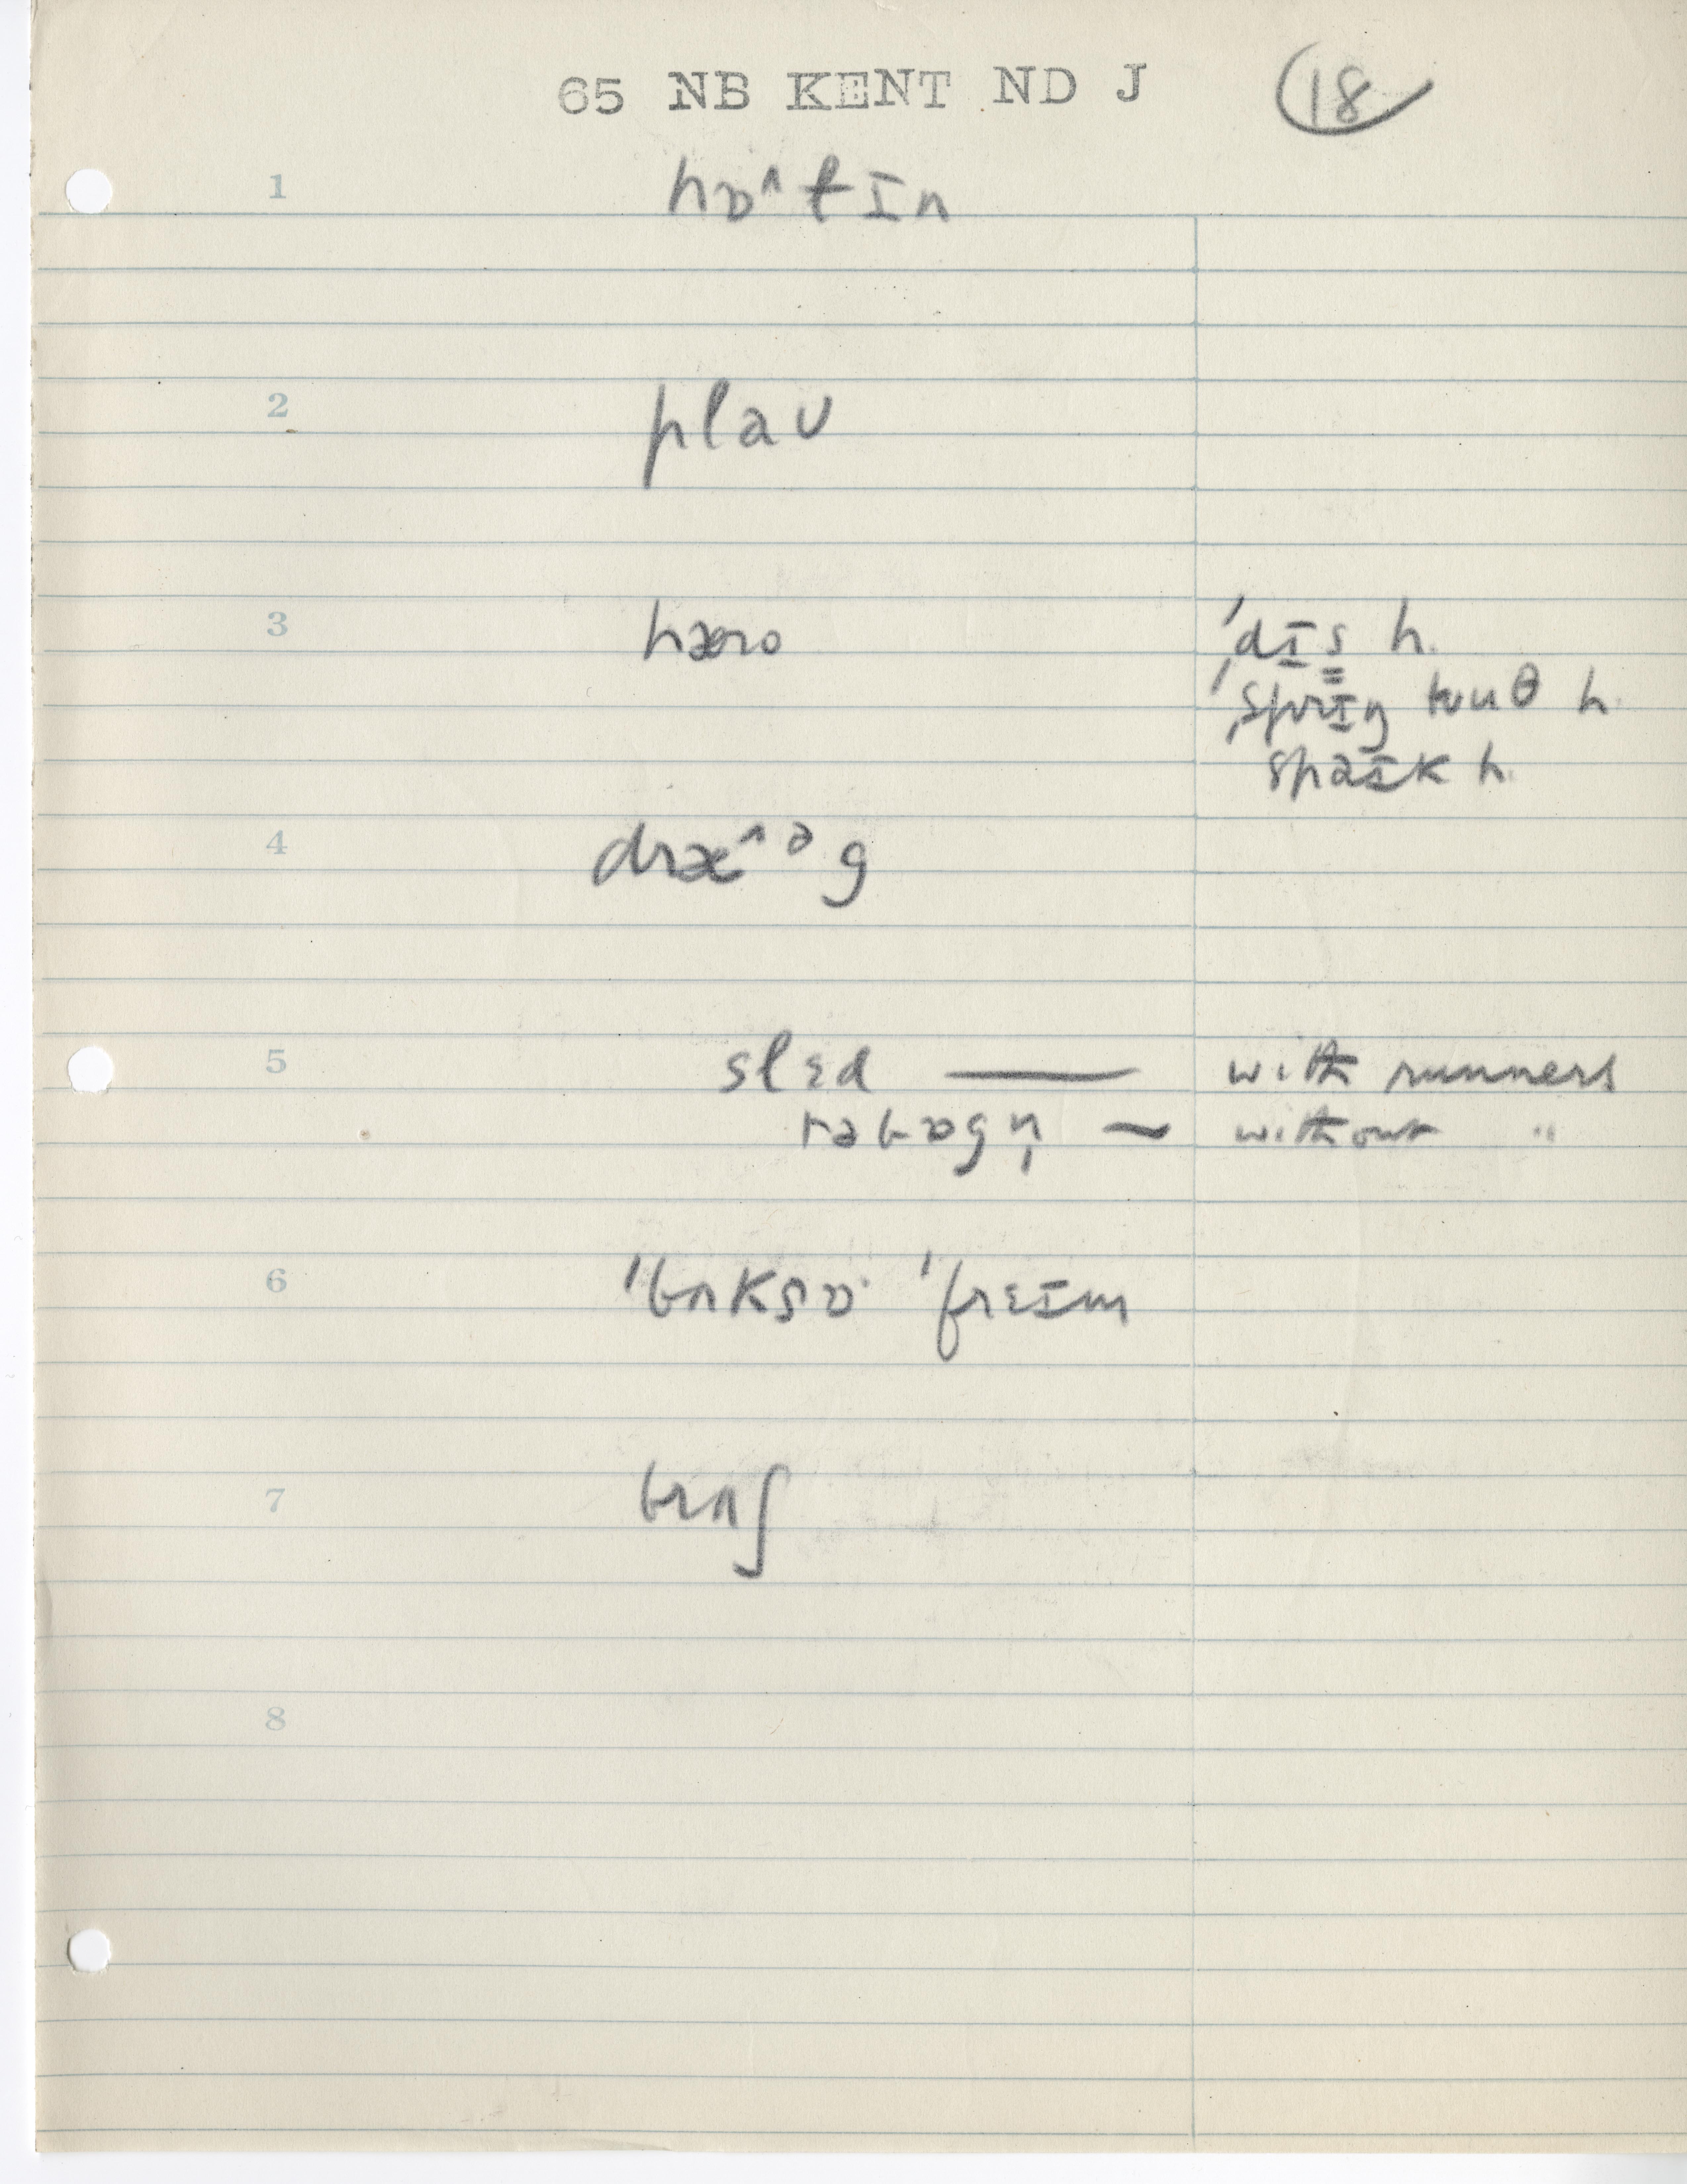 65 NB KENT ND J 18
1 hɒ^ɫɪn
2 plaʊ
3 hæro 'dɪs h.
'sprɪŋ tuuθ h.
spaɪk h.
4 dræ^ᵊg
5 slɛd — with runners
təbɒgn̩ — without "
6 'bʌksɒ 'freɪm
7 brʌʃ
8